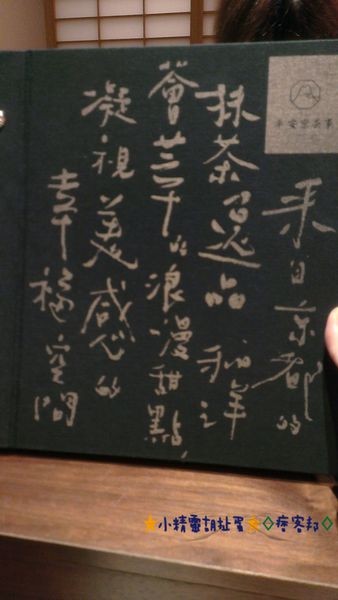 平安京茶事
來自京都的
抹茶逸品 和洋
薈萃的浪漫甜點，
凝視美感的
幸福空間
★小精靈胡扯蛋★◇痞客邦◇